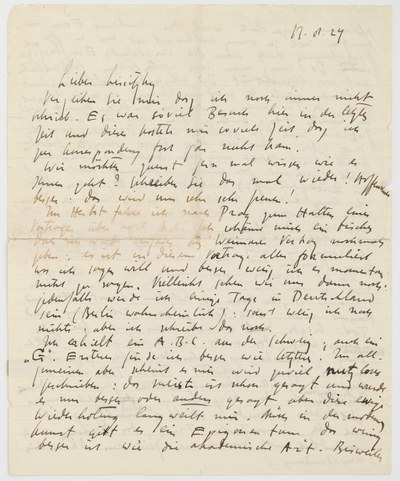 17.8.24
Lieber Lissitzky
Verzeihen Sie mir, dass ich noch immer nicht
schrieb. Es war soviel Besuch hier in der letzten
Zeit und diese kostete mir soviel Zeit, dass ich
zur Korrespondenz fast gar nicht kam.
Wir möchten zuerst gern mal wissen wie es
Ihnen geht? Schreiben Sie das mal wieder! Hoffentlich
besser: das wird uns sehr freuen!
Im Herbst fahre ich nach Prag zum Halten eines
Vortrages aber ich
Weimarer Vortrag nochmals
geben: es ist in diesem Vortrag alles formuliert
was ich sagen will und besser weiss ich es momentan
nicht zu sagen. Vielleicht sehen wir uns dann noch.
jedenfalls werde ich einige Tage in Deutschland
sein (Berlin wahrscheinlich): sonst weiss ich noch
nichts, aber ich schreibe das noch.
Ich erhielt ein A.B.C. aus der Schweiz, auch ein
„G". Ersteres finde ich besser wie letzteres. Im all-
gemeinen aber scheint es mir wird zuviel nutzloses
geschrieben: das meiste ist schon gesagt und wurde
es nun besser oder anders gesagt aber diese ewige
Wiederholung langweilt mir. Auch in der modernen
Kunst gibt es ein Epigonentum das wenig
besser ist wie die akademische Art. Bisweilen